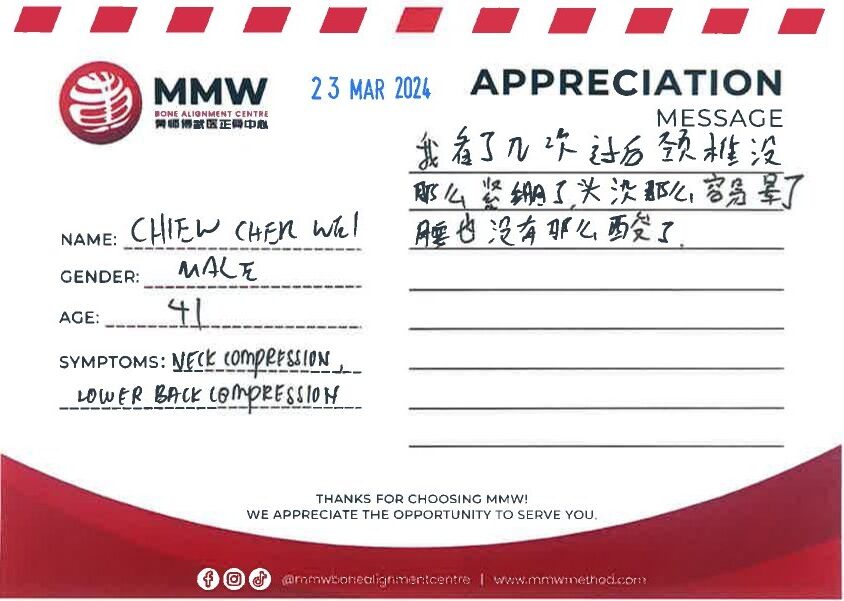 MMW
BONE ALIGNMENT CENTRE
23 MAR 2024
APPRECIATION
MESSAGE
我看了几次过后颈椎没
那么紧绷了,头没那么容易晕了
腰也没有那么酸了.
NAME: CHIEW CHER WEI
GENDER: MALE
AGE: 41
SYMPTOMS: NECK COMPRESSION,
LOWER BACK COMPRESSION
THANKS FOR CHOOSING MMW!
WE APPRECIATE THE OPPORTUNITY TO SERVE YOU.
@mmwbonealignmentcentre | www.mmwmethod.com